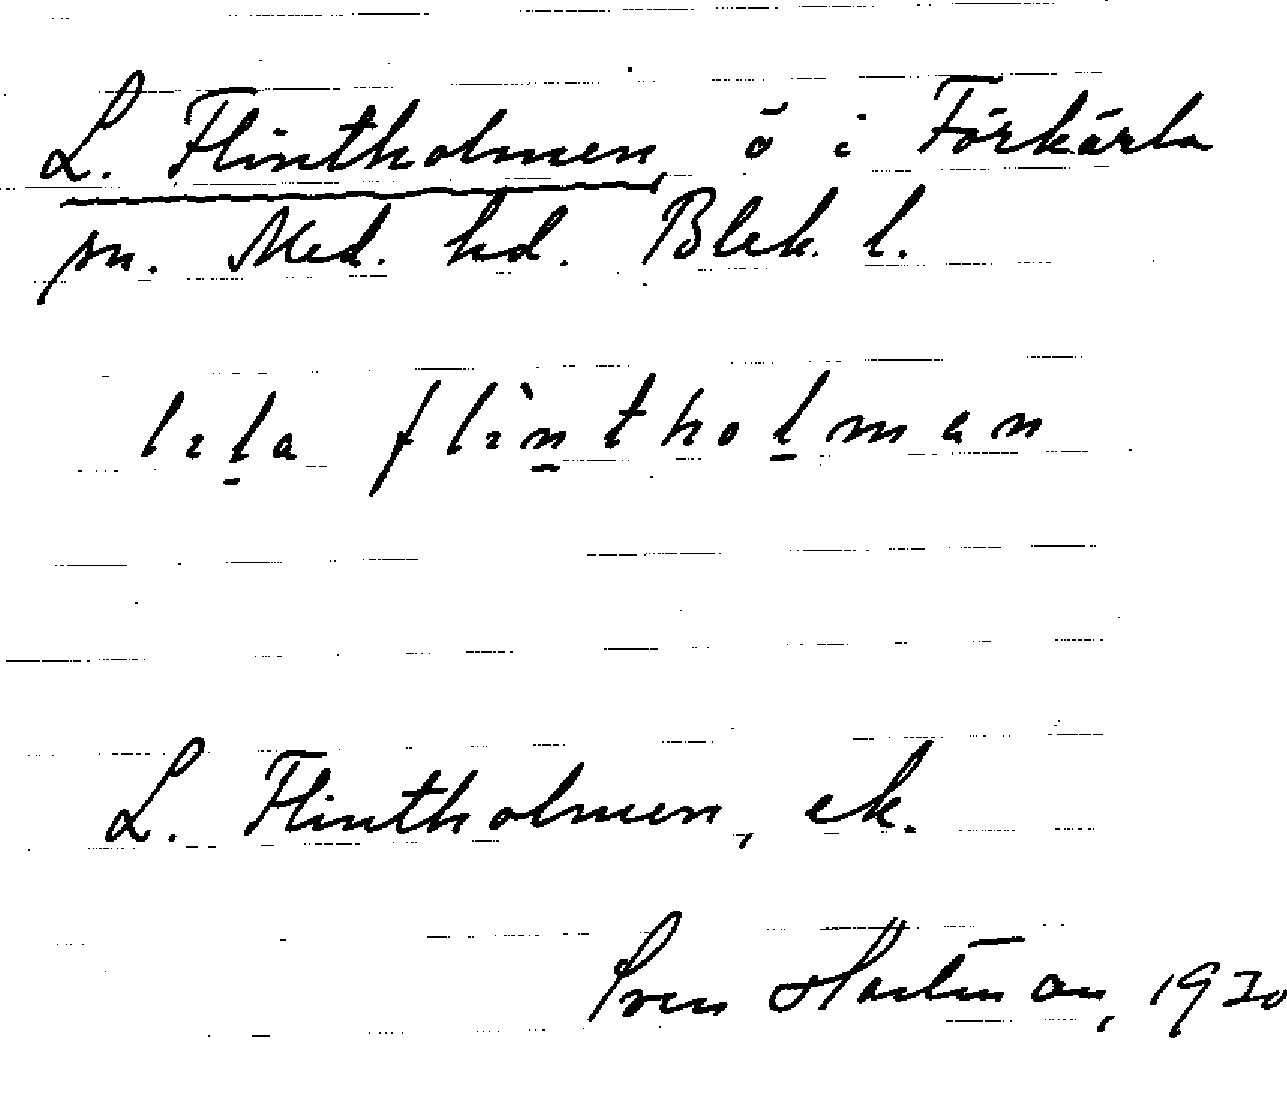 L. Flintholmen, ö i Förkärla
sn. Med. hd. Blek. l.
lıl̲a flìn̲thol̲man
L. Flintholmen, ek.
Sven Hartman, 1930